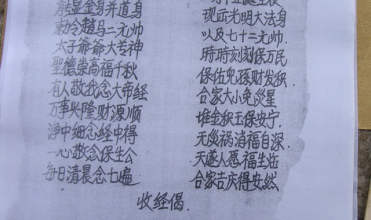 身并道身
敕令趙馬二元帅
太子爺爺大专神
聖德崇高福千秋
有人敬我念大帝經
万事兴隆财源顺
净中细念经中得
一心敬念保生公
每日清晨念七遍
现示光明大法身
以及七十二元帅
時時刻刻保万民
保佐兜孫财发积
合家大小免災星
堆金积玉保安宁
无災祸消福自深
天遂人愿福生近
合家吉庆得安然
收经偈